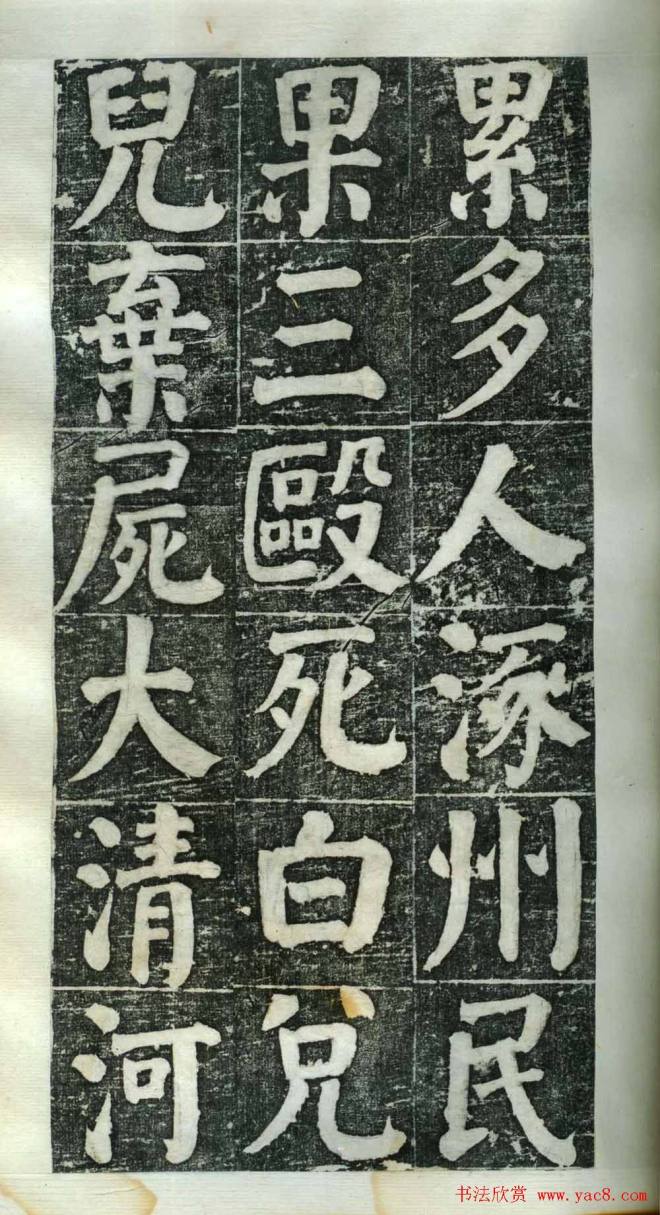 累多人涿州民
果三毆死白兌
兒棄屍大清河
书法欣赏 www.yac8.com